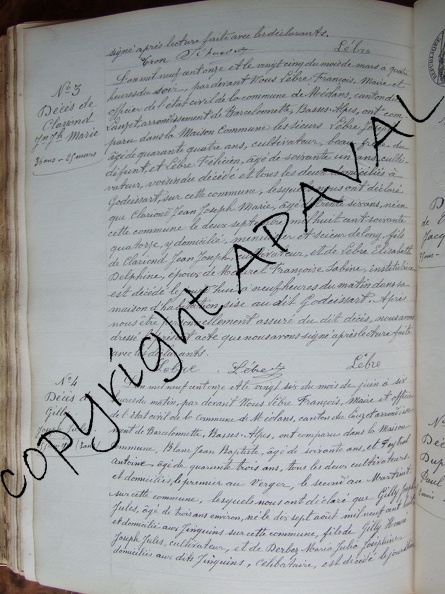 signé après lecture faite avec les déclarants.
Lèbre
N° 3
Décès de
Clariond
Jn Jph Marie
36 ans - 25 mars
L'an mil neuf cent onze et le vingt cinq du mois de mars à quatre
heures du soir, par devant Nous Lèbre François, Maire et
officier de l'état civil de la commune de Méolans, canton du
Lauzet, arrondissement de Barcelonnette, Basses-Alpes, ont com
paru dans la Maison Commune les sieurs Lèbre
âgé de quarante quatre ans, cultivateur, beau frère du
défunt, et Lèbre Félicien, âgé de soixante un ans, culti
vateur, voisin du décédé et tous les deux domiciliés à
Godeissart, sur cette commune, lesquels nous ont déclaré
que Clariond Jean Joseph Marie, âgé de trente six ans, né en
cette commune le deux septembre mil huit cent soixante
quatorze, y domicilié, menuisier et scieur de long, fils
de Clariond Jean Joseph, cultivateur, et de Lèbre Elisabeth
Delphine, époux de Françoise Sabine, institutrice
est décédé le jour d'hui à neuf heures du matin dans sa
maison d'habitation, sise au dit Godeissart. Après
nous être personnellement assuré du dit décès, nous avons
dressé le présent acte que nous avons signé après lecture faite
avec les déclarants.
Lèbre Lèbre Lèbre
N° 4
Décès de
Gilly
L'an mil neuf cent onze et le vingt six du mois de juin à six
heures du matin, par devant Nous Lèbre François, Maire et officier
de l'état civil de la Commune de Méolans, canton du Lauzet arrondisse
ment de Barcelonnette, Basses-Alpes, ont comparu dans la Maison
Commune, Blanc Jean Baptiste, âgé de soixante ans, et
Antoine, âgé de quarante trois ans, tous les deux cultivateurs
et domiciliés, le premier au Verger, le second au Martinet
sur cette commune, lesquels nous ont déclaré que Gilly Joseph
Jules, âgé de trois ans environ, né le dix sept août mil neuf cent
et domicilié aux Finguins sur cette commune, fils de Gilly
Joseph Jules, cultivateur, et de Derbez Maria Julie Joséphine,
domiciliés aux dits Finguins, célibataire, est décédé le jour
copyright APAVAL